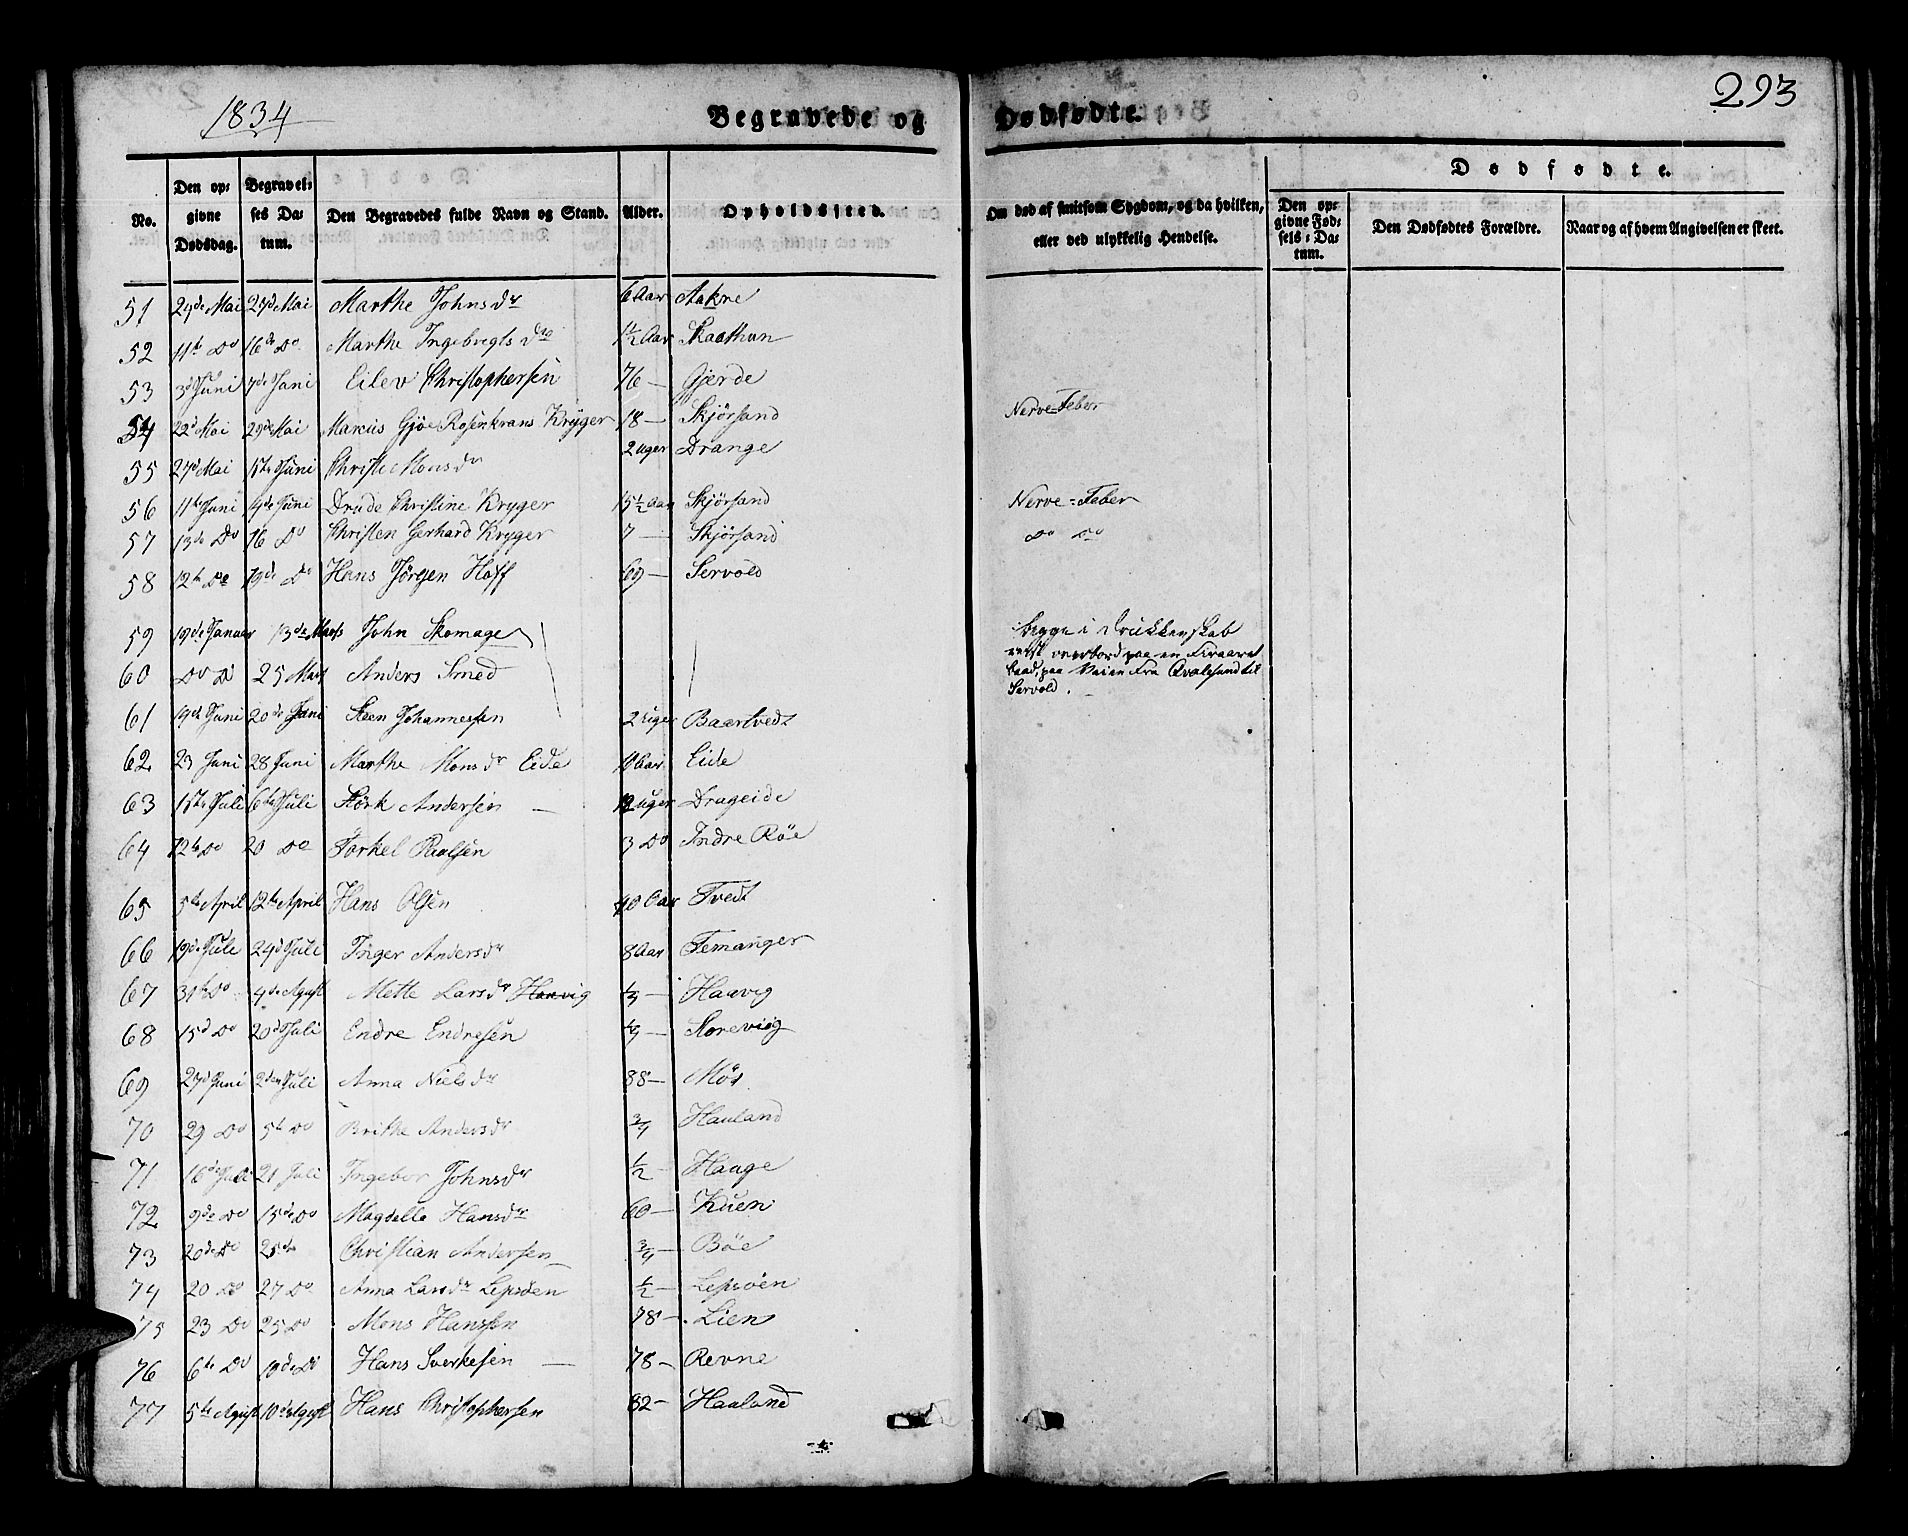 1834
293
Begravede og Dødfødte.
No.
Den opgivne Dødsdag.
Begravelses Datum.
Den Begravedes fulde Navn og Stand.
Alder.
Opholdssted.
Om død af smitsom Sygdom, og da hvilken, eller ved ulykkelig Hendelse.
Dødfødte.
Den opgivne Fødsels-Datum.
Den Dødfødtes Forældre.
Naar og af hvem Angivelsen er skeet.
51 24de Mai 27de Mai Marthe Johnsdr 6 Aar Aakre
52 11te Do 16de Do Marthe Ingebregtsdr 1½ Aar Skaathun
53 3d Juni 7de Juni Eilev Christophersen 76 — Gjerde
54 22d Mai 29de Mai Marcus Gjøe Rosenkrans Kryger 18 — Skjørsand Nerve-Feber
55 27d Mai 1ste Juni Christi Monsdr 2 uger Drange
56 11te Juni 19de Juni Drude Christine Kryger 15½ Aar Skjørsand Nerve-Feber
57 13de Do 16 Do Christen Gerhard Kryger 7 — Skjørsand Do Do
58 12te Do 19de Do Hans Jørgen Hoff 69 — Servold
59 19de Januar 13de Marts John Skomager
60 Do Do 25 Mars Anders Smed
begge i Drukkenskab
overbord paa en Firaaret
baad, paa Veien fra Qvalesund til
Servold.
61 19de Juni 20de Juni Steen Johannessen 2 uger Baartvedt
62 23 Juni 28 Juni Marthe Monsdr Eide 10 Aar Eide
63 1ste Juli 6te Juli Størk Andersen — 12 uger Drageide
64 12te Do 20 Do Torkel Paalsen 3 Do Indre Røe
65 5te April 12te April Hans Olsen 40 Aar Tvedt
66 19de Juli 29d Juli Inger Andersdr 8 Aar Femanger
67 31te Do 4de Agust Mette Larsdr Haavig ¼ — Haavig
68 15d Do 20d Juli Endre Endresen ¼ — Storeviig
69 27d Juni 2den Juli Anna Nielsdr 88 — Møs
70 29 Do 5te Do Brithe Andersdr ¾ Hauland
71 16de Juli 21 Juli Ingebor Johnsdr ½ — Hauge
72 9de Do 15de Do Magdella Hansdr 60 — Kuen
73 20de Do 25de Christian Andersen — ¾ — Bøe
74 20 Do 27 Do Anna Larsdr Lepsøen ½ — Lepsøen
75 23 Do 25 Do Mons Hanssen 78 — Lien
76 6te Do 10de Do Hans Sverkesen — 78 — Revne
77 5te Agust 10de Agust Hans Christophersen 82 — Haaland